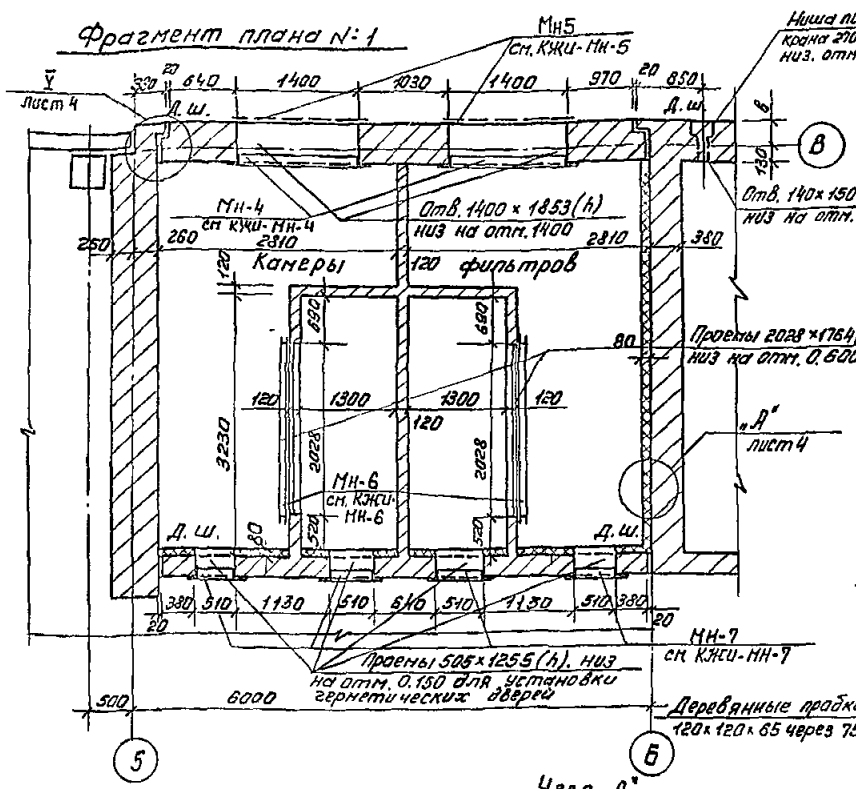 Фрагмент плана №1
Мн5
см. КЖИ-Мн-5
Ниша
крана 270
низ. отм.
V
лист 4
330 20 640 1400 1030 1400 970 20 850
Д.Ш.
Д.Ш.
В
130
В
Мн-4
см КЖИ-Мн-4
Отв. 1400 × 1853 (h)
низ на отм. 1400
Отв. 140×150
низ на отм.
250 260 2810 2810 380
Камеры фильтров
120
120
690
690
80
Проемы 2028×1764
низ на отм. 0.600
120 1300 1300 120
120
3230
2028
2028
„А"
лист 4
Мн-6
см. КЖИ-
Мн-6
520
520
Д.Ш.
80
Д.Ш.
380 510 1130 510 640 510 1130 510 380
20
20
Мн-7
см КЖИ-Мн-7
Проемы 505×1255 (h). низ
на отм. 0.150 для установки
герметических дверей
500 6000
Деревянные пробки
120×120×65 через 75
5
6